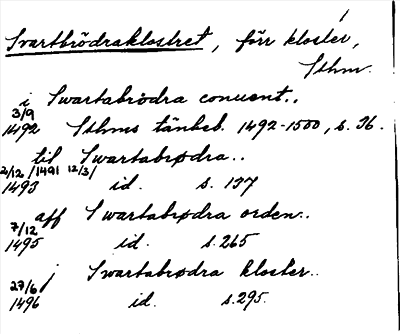 Svartbrödraklostret, förr kloster,
Sthm.
i Swartabrödra conuent..
3/9
1492 Sthms tänkeb. 1492-1500, s. 36.
till Swartabrødra..
2/12/1491 12/3/
1493 id. s. 137
aff Swartabrødra orden..
7/12
1495 id. s. 265
j Swartabrødra kloster..
27/6
1496 id. s. 295.